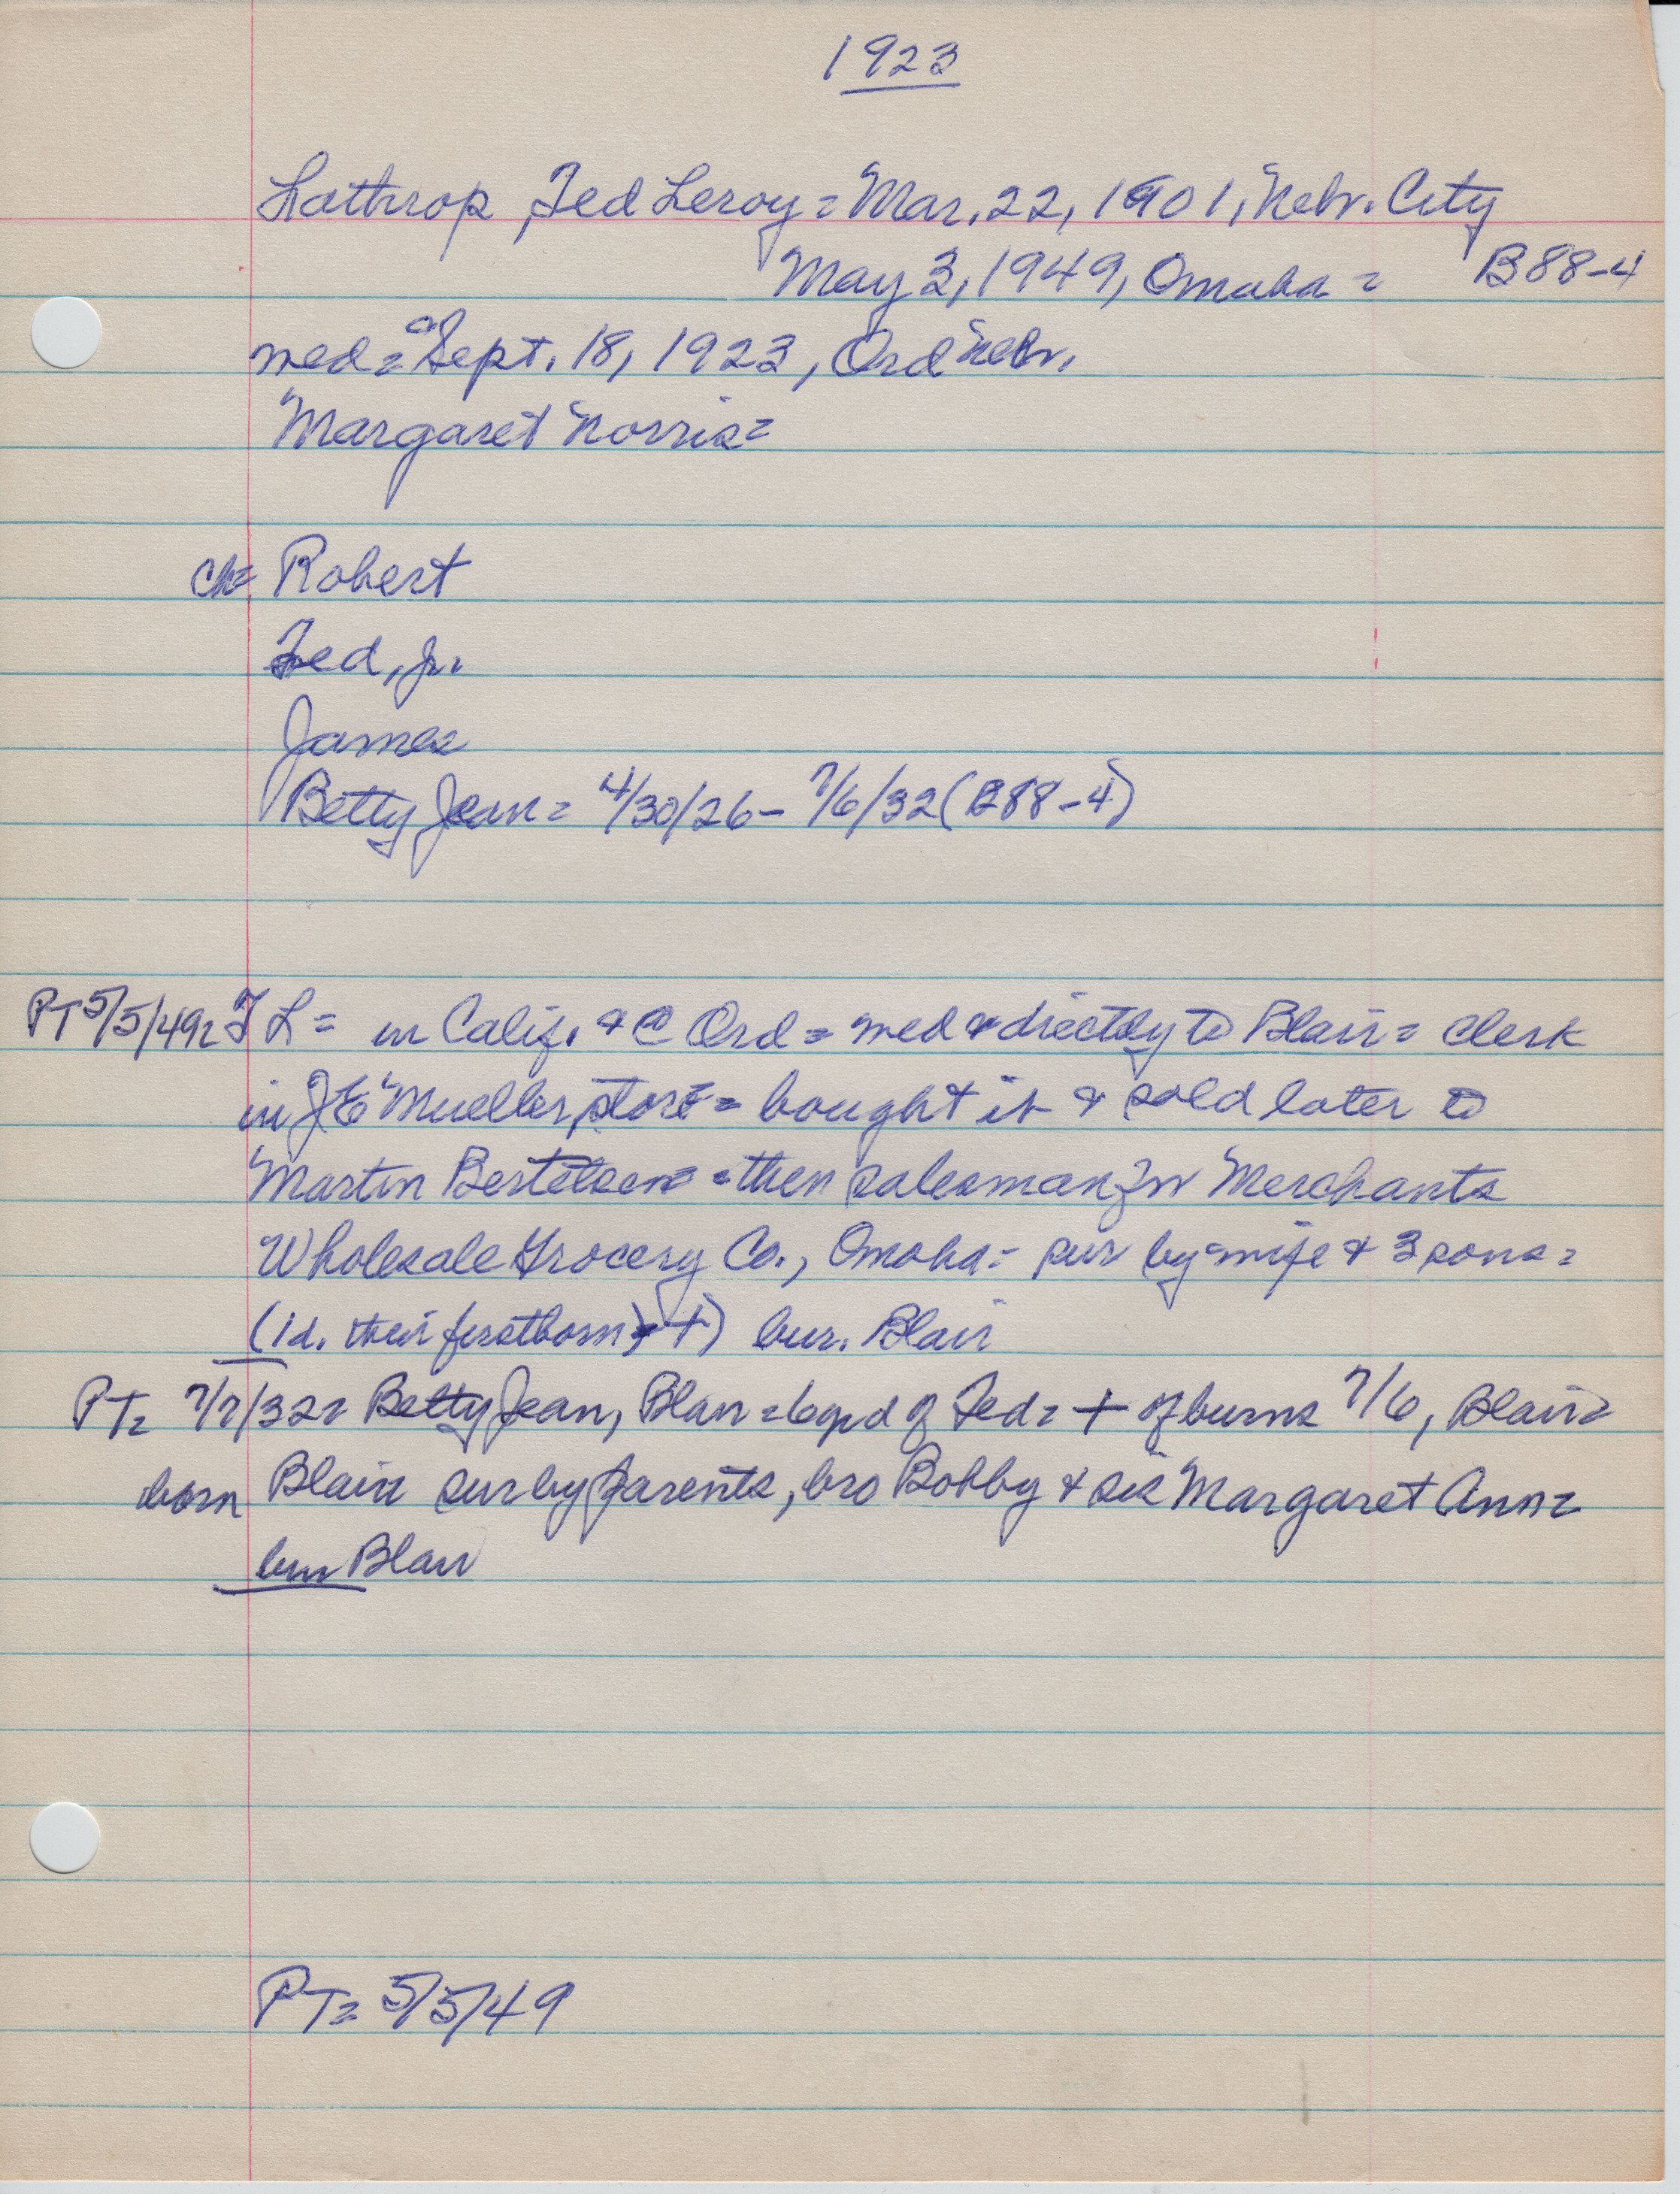 1923
Lathrop, Ted Leroy = Mar. 22, 1901, Nebr. City
May 3, 1949, Omaha = B88-4
med = Sept. 18, 1923, Ord Nebr.
Margaret Norris =
ch = Robert
Ted, Jr.
James
Betty Jean = 4/30/26 - 7/6/32 (B88-4)
PT 5/5/49 = T L = in Calif. & @ Ord = med & directly to Blair = clerk
in J E Mueller store = bought it & sold later to
Martin Bertelsen = then salesman for Merchants
Wholesale Grocery Co., Omaha = sur by wife & 3 sons =
(1 d. their firstborn, +) bur. Blair
PT = 7/7/32 = Betty Jean, Blair = 6 yr d of Ted = + of burns 7/6, Blair =
born Blair sur by parents, bro Bobby & sis Margaret Ann =
bur Blair
PT = 5/5/49